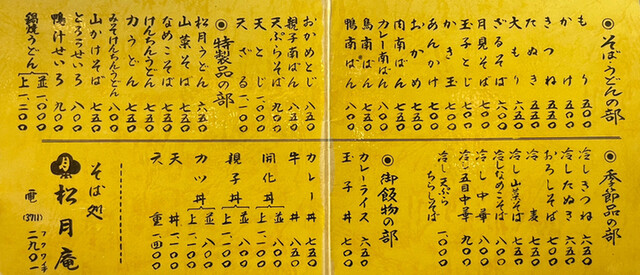 ◎そば・うどんの部
もり 五〇〇
かけ 五〇〇
きつね 五五〇
たぬき 五五〇
大もり 六五〇
ざるそば 六五〇
月見そば 六五〇
玉子とじ 七五〇
かき玉 七五〇
あんかけ 七〇〇
おかめ 七五〇
肉南ばん 七五〇
カレー南ばん 八〇〇
鳥南ばん 八〇〇
鴨南ばん
おかめとじ 八五〇
親子南ばん 八五〇
天ぷらそば 九〇〇
天とじ
天ざる 一二〇〇
◎特製品の部
松月うどん 六五〇
山菜そば 七五〇
なめこそば 七五〇
けんちんうどん 七五〇
力うどん 七五〇
みそけんちんうどん 八〇〇
山かけそば 七五〇
とろろせいろ 九〇〇
鴨汁せいろ
鍋焼うどん 並 一一〇〇 上 一二〇〇
◎季節品の部
冷しきつね 六五〇
冷したぬき 六五〇
おろしそば 七五〇
冷し麦
冷し山菜そば 七五〇
冷しなめこそば 八〇〇
冷し中華 八〇〇
冷し五目中華 九〇〇
冷し天ぷらちらしそば 一、〇〇〇
◎御飯物の部
カレーライス 六五〇
玉子丼 七〇〇
カレー丼 七五〇
牛丼 八〇〇
開化丼 並 八〇〇 上 一一〇〇
親子丼 並 八〇〇 上 一一〇〇
カツ丼 並 八〇〇 上 一一〇〇
天丼 一一〇〇
天重 一四〇〇
そば処
月
松月庵
電(3711)二九〇一
フクワ一手